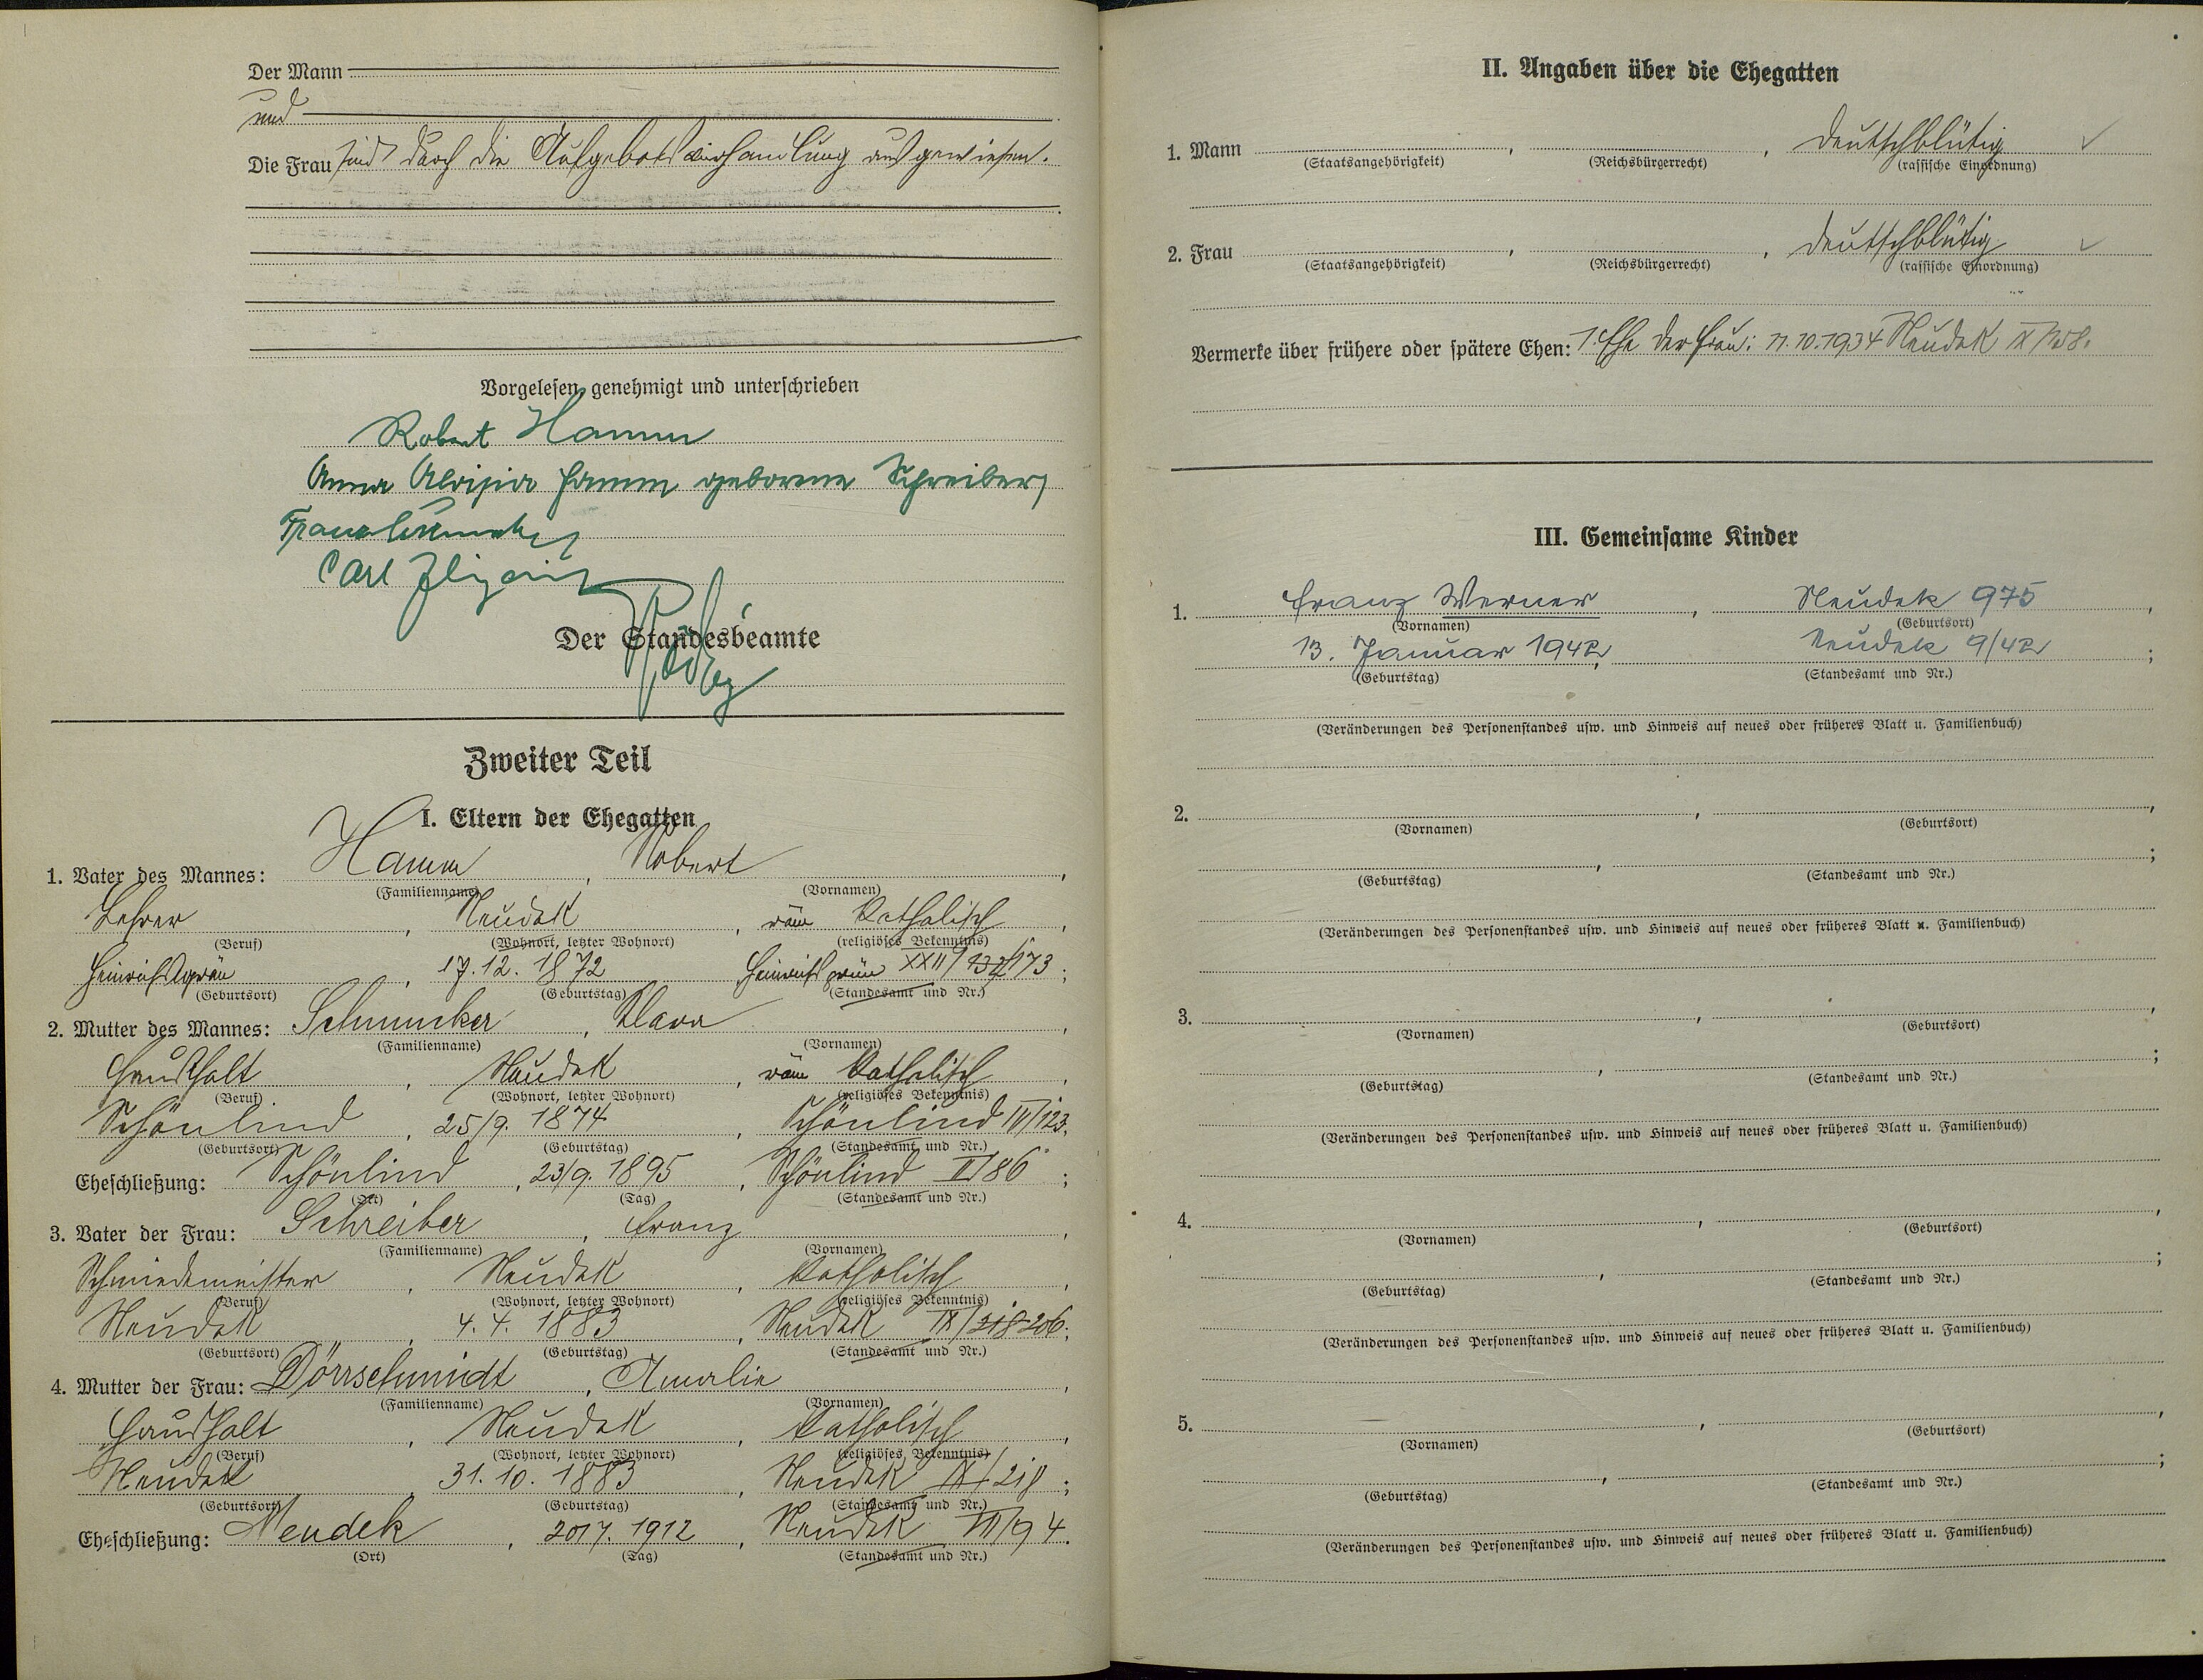 Der Mann
und
Die Frau sind durch die Aufgebotsverhandlung ausgewiesen.
Vorgelesen, genehmigt und unterschrieben
Robert Hamm
Anna Aloisia Hamm geborene Schreiber
Franz
Carl
Der Standesbeamte
Zweiter Teil
I. Eltern der Ehegatten
1. Vater des Mannes: Hamm, Robert,
(Familienname) (Vornamen)
Lehrer, Neudek, röm Katholisch,
(Beruf) (Wohnort, letzter Wohnort) (religiöses Bekenntnis)
Heinrichsgrün, 17.12.1872, Heinrichsgrün XXII/132/173;
(Geburtsort) (Geburtstag) (Standesamt und Nr.)
2. Mutter des Mannes: Schmucker, Klara,
(Familienname) (Vornamen)
Haushalt, Neudek, röm Katholisch,
(Beruf) (Wohnort, letzter Wohnort) (religiöses Bekenntnis)
Schönlind, 25/9. 1874, Schönlind IV/123.
(Geburtsort) (Geburtstag) (Standesamt und Nr.)
Eheschließung: Schönlind, 23/9. 1895, Schönlind II/86;
(Ort) (Tag) (Standesamt und Nr.)
3. Vater der Frau: Schreiber, Franz,
(Familienname) (Vornamen)
Schmiedemeister, Neudek, Katholisch,
(Beruf) (Wohnort, letzter Wohnort) (religiöses Bekenntnis)
Neudek, 4. 4. 1883, Neudek IX/218 206;
(Geburtsort) (Geburtstag) (Standesamt und Nr.)
4. Mutter der Frau: Dörrschmidt, Amalie,
(Familienname) (Vornamen)
Haushalt, Neudek, Katholisch,
(Beruf) (Wohnort, letzter Wohnort) (religiöses Bekenntnis)
Neudek, 31. 10. 1883, Neudek IX/218;
(Geburtsort) (Geburtstag) (Standesamt und Nr.)
Eheschließung: Neudek, 20/7. 1912, Neudek VII/94.
(Ort) (Tag) (Standesamt und Nr.)
II. Angaben über die Ehegatten
1. Mann , , deutschblütig
(Staatsangehörigkeit) (Reichsbürgerrecht) (rassische Einordnung)
2. Frau , , deutschblütig
(Staatsangehörigkeit) (Reichsbürgerrecht) (rassische Einordnung)
Vermerke über frühere oder spätere Ehen: 1. Ehe der Frau: 11.10.1934 Neudek
III. Gemeinsame Kinder
1. Franz Werner, Neudek 975,
(Vornamen) (Geburtsort)
13. Januar 1942, Neudek 9/42;
(Geburtstag) (Standesamt und Nr.)
(Veränderungen des Personenstandes usw. und Hinweis auf neues oder früheres Blatt u. Familienbuch)
2. , ,
(Vornamen) (Geburtsort)
, ;
(Geburtstag) (Standesamt und Nr.)
(Veränderungen des Personenstandes usw. und Hinweis auf neues oder früheres Blatt u. Familienbuch)
3. , ,
(Vornamen) (Geburtsort)
, ;
(Geburtstag) (Standesamt und Nr.)
(Veränderungen des Personenstandes usw. und Hinweis auf neues oder früheres Blatt u. Familienbuch)
4. , ,
(Vornamen) (Geburtsort)
, ;
(Geburtstag) (Standesamt und Nr.)
(Veränderungen des Personenstandes usw. und Hinweis auf neues oder früheres Blatt u. Familienbuch)
5. , ,
(Vornamen) (Geburtsort)
, ;
(Geburtstag) (Standesamt und Nr.)
(Veränderungen des Personenstandes usw. und Hinweis auf neues oder früheres Blatt u. Familienbuch)